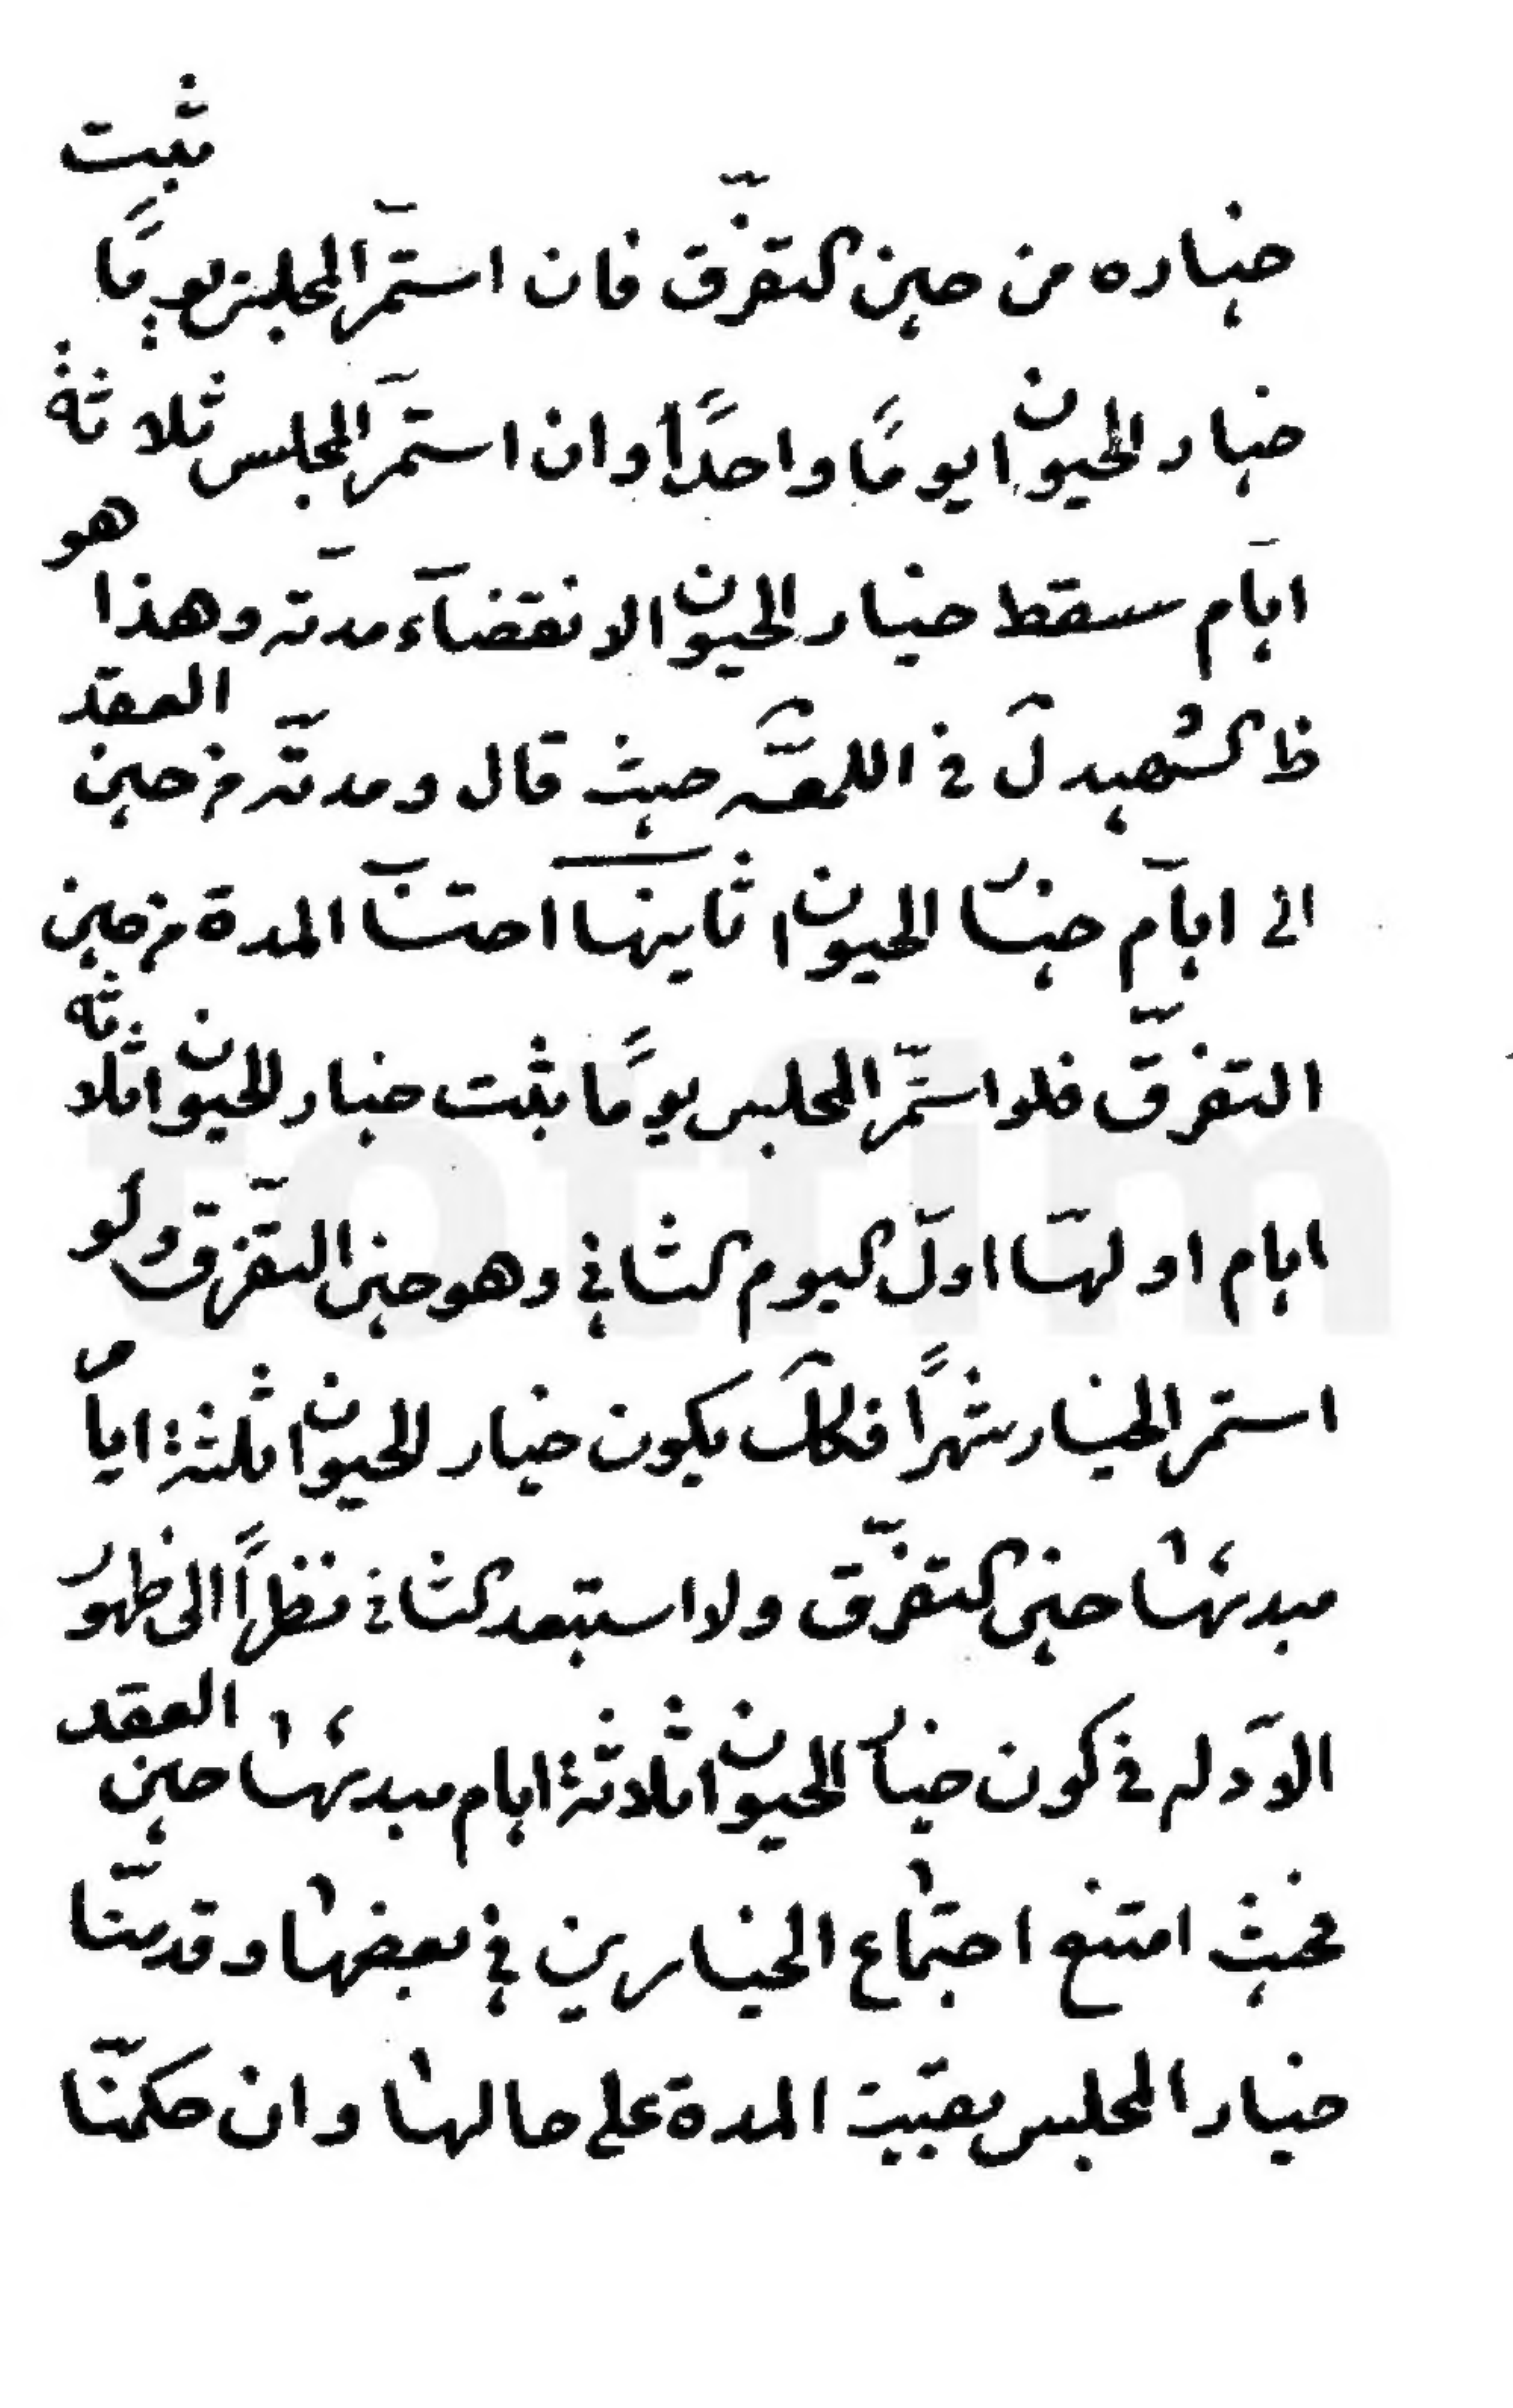 خياره من حين التفرق فان استمرّ المجلس يومًا ثبت
خيار الحيوان يومًا واحدًا وان استمرّ المجلس ثلاثة
ايّام سقط خيار الحيوان لانقضآء مدته وهذا هو
ظ الشهيد ل في اللمعة حيث قال ومدته من حين العقد
الى ايام خيار الحيوان ثانيها احتسا المدة من حين
التفرّق فلو استمرّ المجلس يومًا يثبت خيار الحيوان ثلاثة
ايام اولها اوّل اليوم الثاني وهو حين التفرّق ولو
استمر الخيار شهرًا فكك يكون خيار الحيوان ثلثة ايام
مبدئها حين التفرّق ولا استبعد الثاني نظرًا الى ظهور
الادله في كون خيار الحيوان ثلاثة ايام مبدئها حين العقد
فحيث امتنع اجتماع الخيارين في بعضها وقدمنا
خيار المجلس بقيت المدة على حالها وان حكمنا